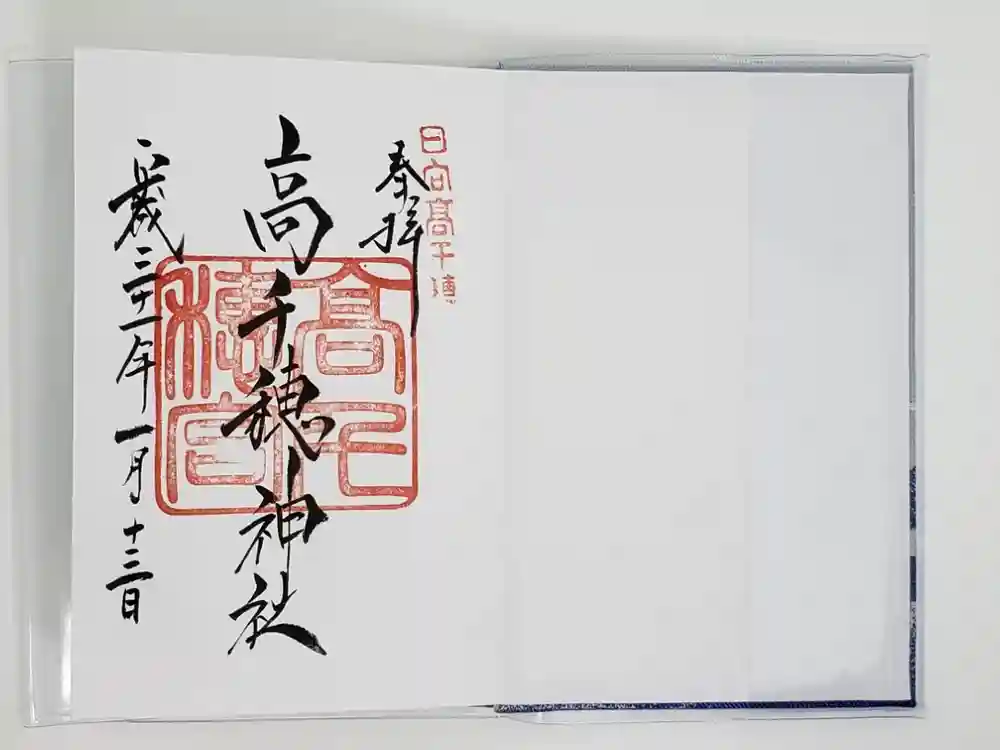 日向高千穂
奉拝
高千穂神社
高千穂宮
平成三十一年一月十三日